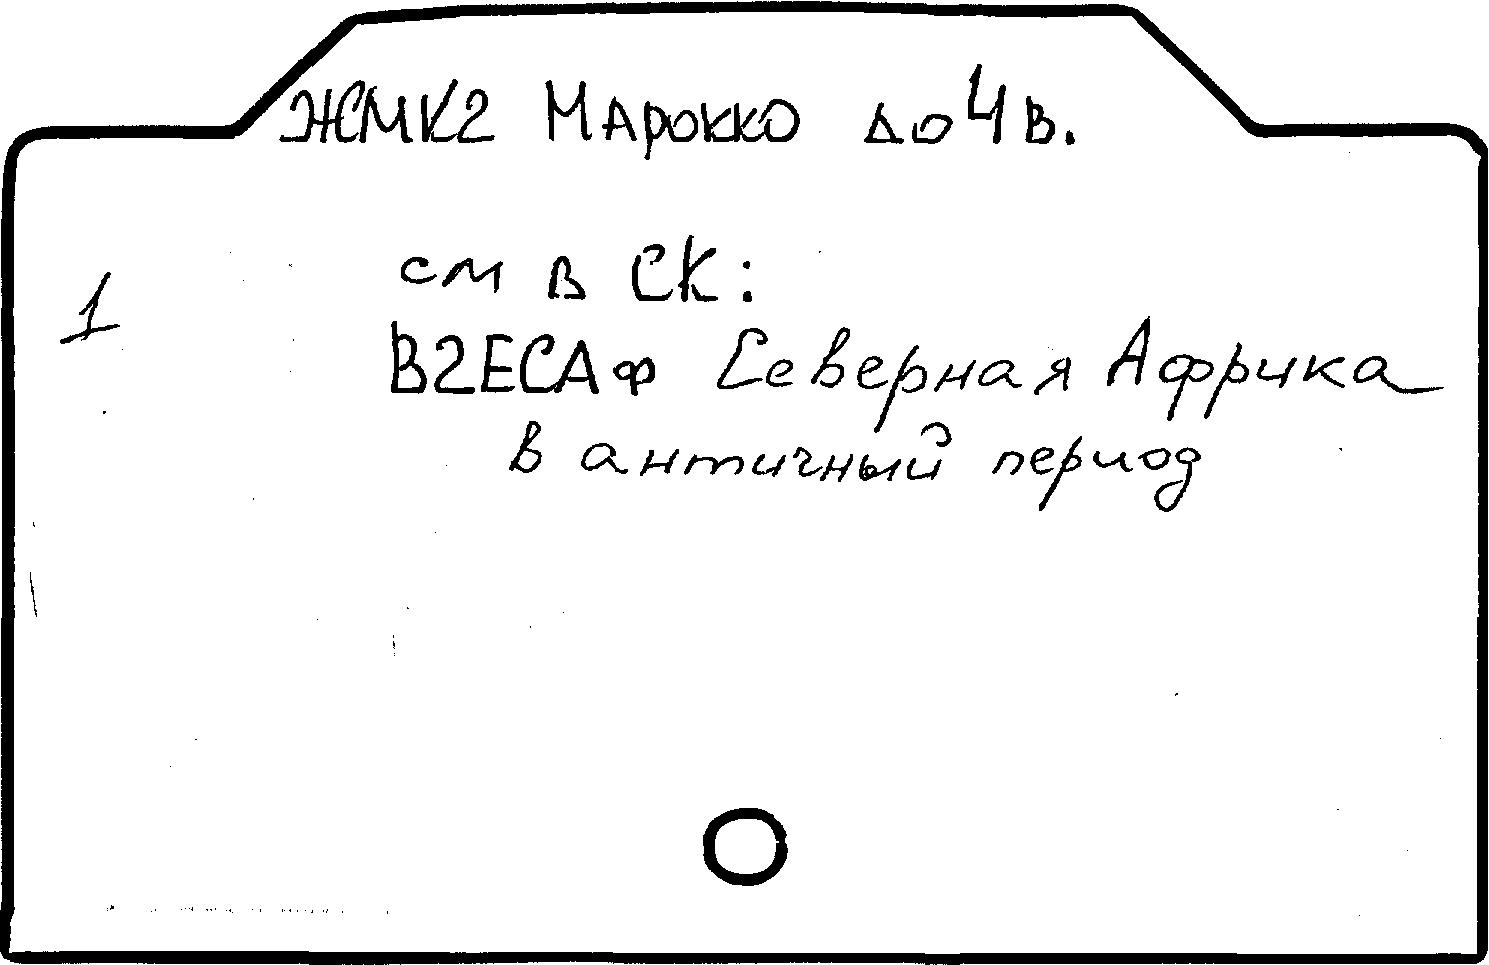 ЖМК2 Марокко до 4 в.
1
см в СК:
В2ЕСАф Северная Африка
в античный период